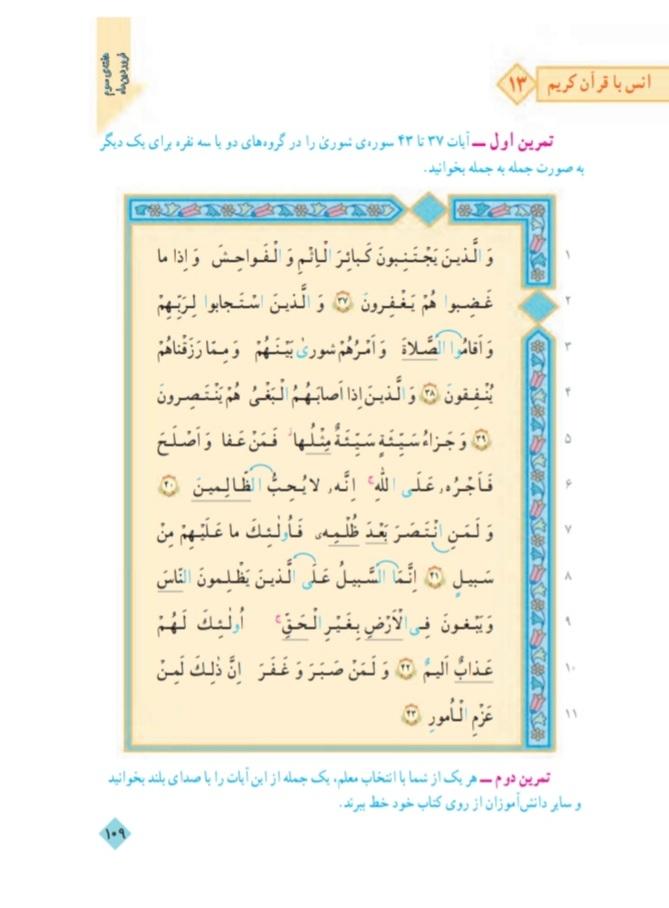 هفته‌ی سوم
فروردین‌ماه
انس با قرآن کریم ۱۳
تمرین اول ــ آیات ۳۷ تا ۴۳ سوره‌ی شوری را در گروه‌های دو یا سه نفره برای یک دیگر
به صورت جمله به جمله بخوانید.
۱ وَ الَّذینَ یَجْتَنِبونَ کَبائِرَ الْاِثْمِ وَ الْفَواحِشَ وَ اِذا ما
۲ غَضِبوا هُمْ یَغْفِرونَ ۳۷ وَ الَّذینَ اسْتَجابوا لِرَبِّهِمْ
۳ وَ اَقامُوا الصَّلاةَ وَ اَمْرُهُمْ شورىٰ بَیْنَهُمْ وَ مِمّا رَزَقْناهُمْ
۴ یُنْفِقونَ ۳۸ وَ الَّذینَ اِذا اَصابَهُمُ الْبَغْیُ هُمْ یَنْتَصِرونَ
۵ ۳۹ وَ جَزاءُ سَیِّئَةٍ سَیِّئَةٌ مِثْلُها فَمَنْ عَفا وَ اَصْلَحَ
۶ فَاَجْرُه, عَلَی اللّٰهِ ج اِنَّه, لا یُحِبُّ الظّالِمینَ ۴۰
۷ وَ لَمَنِ انْتَصَرَ بَعْدَ ظُلْمِهٖ فَاُولٰئِکَ ما عَلَیْهِمْ مِنْ
۸ سَبیلٍ ۴۱ اِنَّمَا السَّبیلُ عَلَی الَّذینَ یَظْلِمونَ النّاسَ
۹ وَ یَبْغونَ فِی الْاَرْضِ بِغَیْرِ الْحَقِّ ج اُولٰئِکَ لَهُمْ
۱۰ عَذابٌ اَلیمٌ ۴۲ وَ لَمَنْ صَبَرَ وَ غَفَرَ اِنَّ ذٰلِکَ لَمِنْ
۱۱ عَزْمِ الْاُمورِ ۴۳
تمرین دوم ــ هر یک از شما با انتخاب معلم، یک جمله از این آیات را با صدای بلند بخوانید
و سایر دانش‌آموزان از روی کتاب خود خط ببرند.
۱۰۹